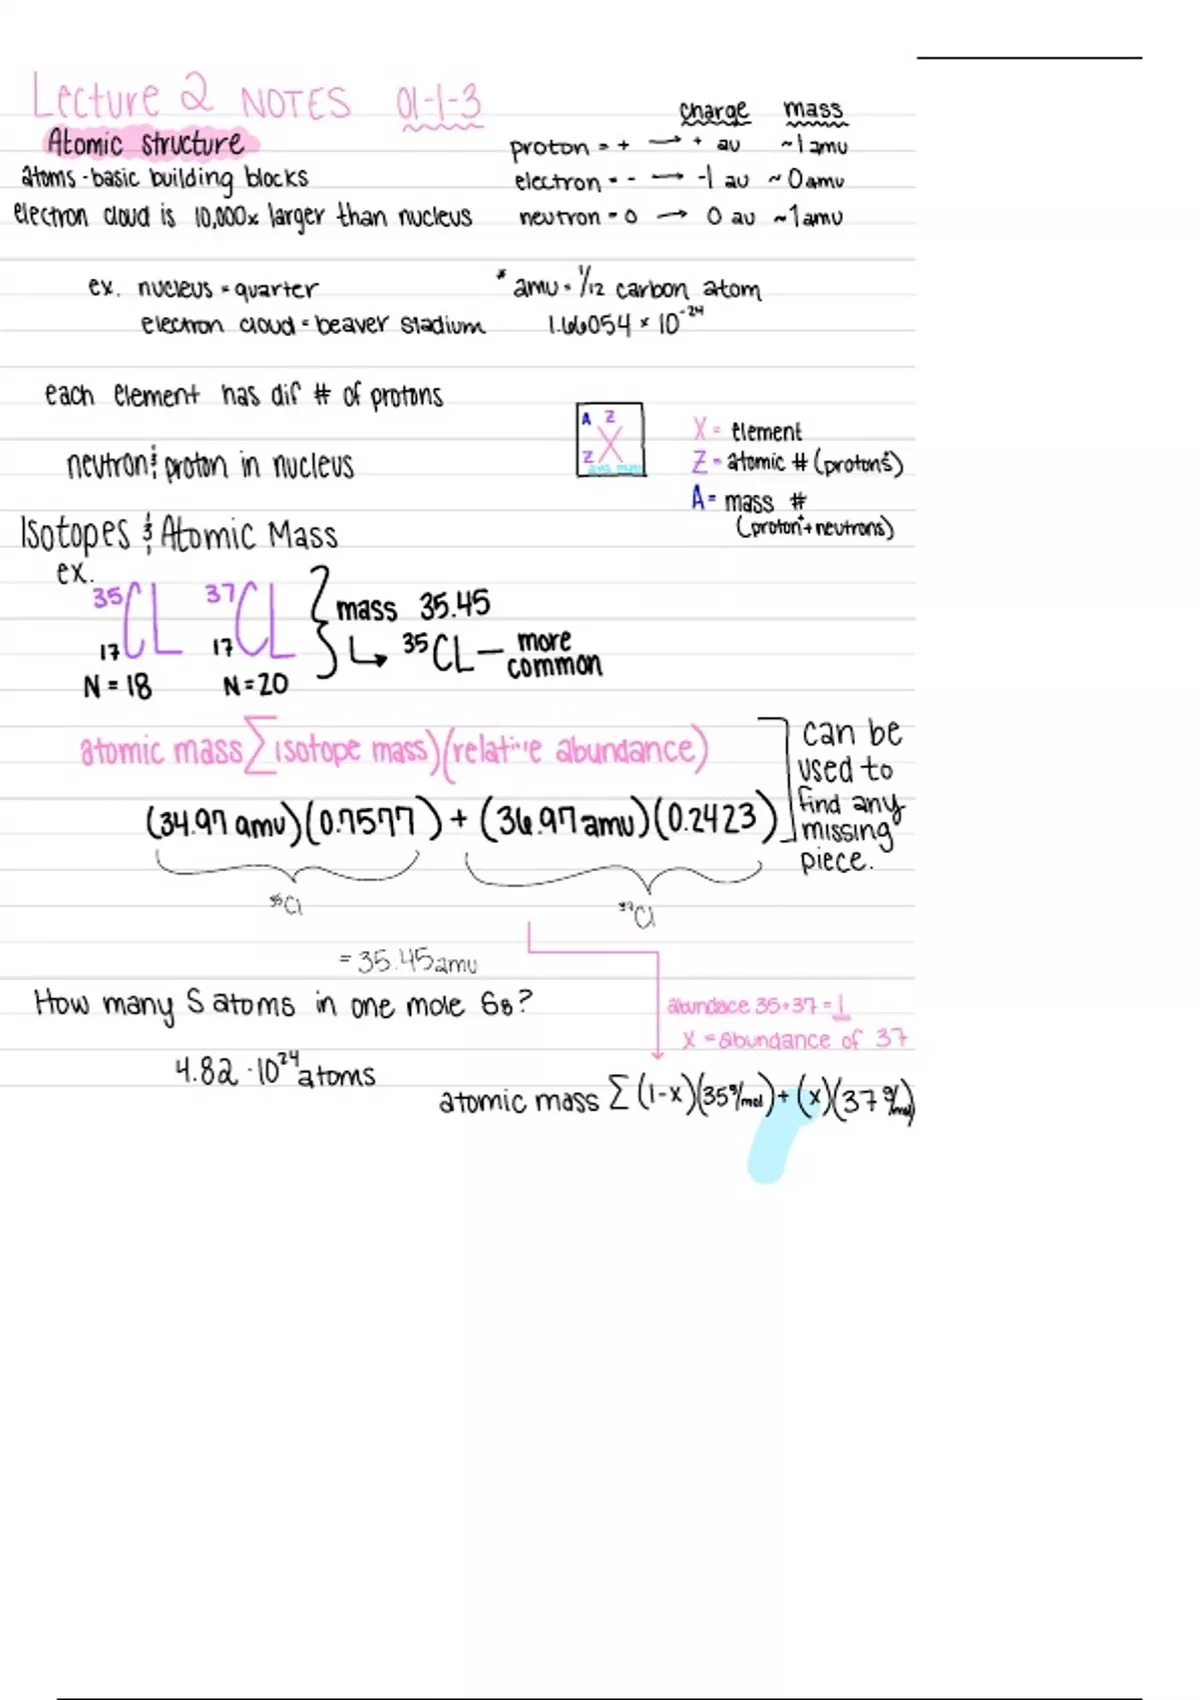 Lecture 2 NOTES 01-1-3
Atomic structure
atoms - basic building blocks
electron cloud is 10,000x larger than nucleus
charge mass
proton = + → + au ~1 amu
electron = - → -1 au ~0 amu
neutron = 0 → 0 au ~1 amu
ex. nucleus = quarter
electron cloud = beaver stadium
* amu = 1/12 carbon atom
1.66054 × 10⁻²⁴
each element has dif # of protons
neutron & proton in nucleus
A Z
X
Z avg mass
X = element
Z = atomic # (protons)
A = mass #
(proton + neutrons)
Isotopes & Atomic Mass
ex.
³⁵₁₇CL ³⁷₁₇CL } mass 35.45
↳ ³⁵CL — more common
N = 18 N = 20
atomic mass ∑ isotope mass)(relative abundance)
(34.97 amu)(0.7577) + (36.97 amu)(0.2423)
can be
used to
find any
missing
piece.
³⁵Cl ³⁷Cl
= 35.45 amu
How many S atoms in one mole S8?
4.82 · 10²⁴ atoms
abundace 35+37 = 1
X = abundance of 37
atomic mass ∑ (1-x)(35 g/mol) + (x)(37 g/mol)